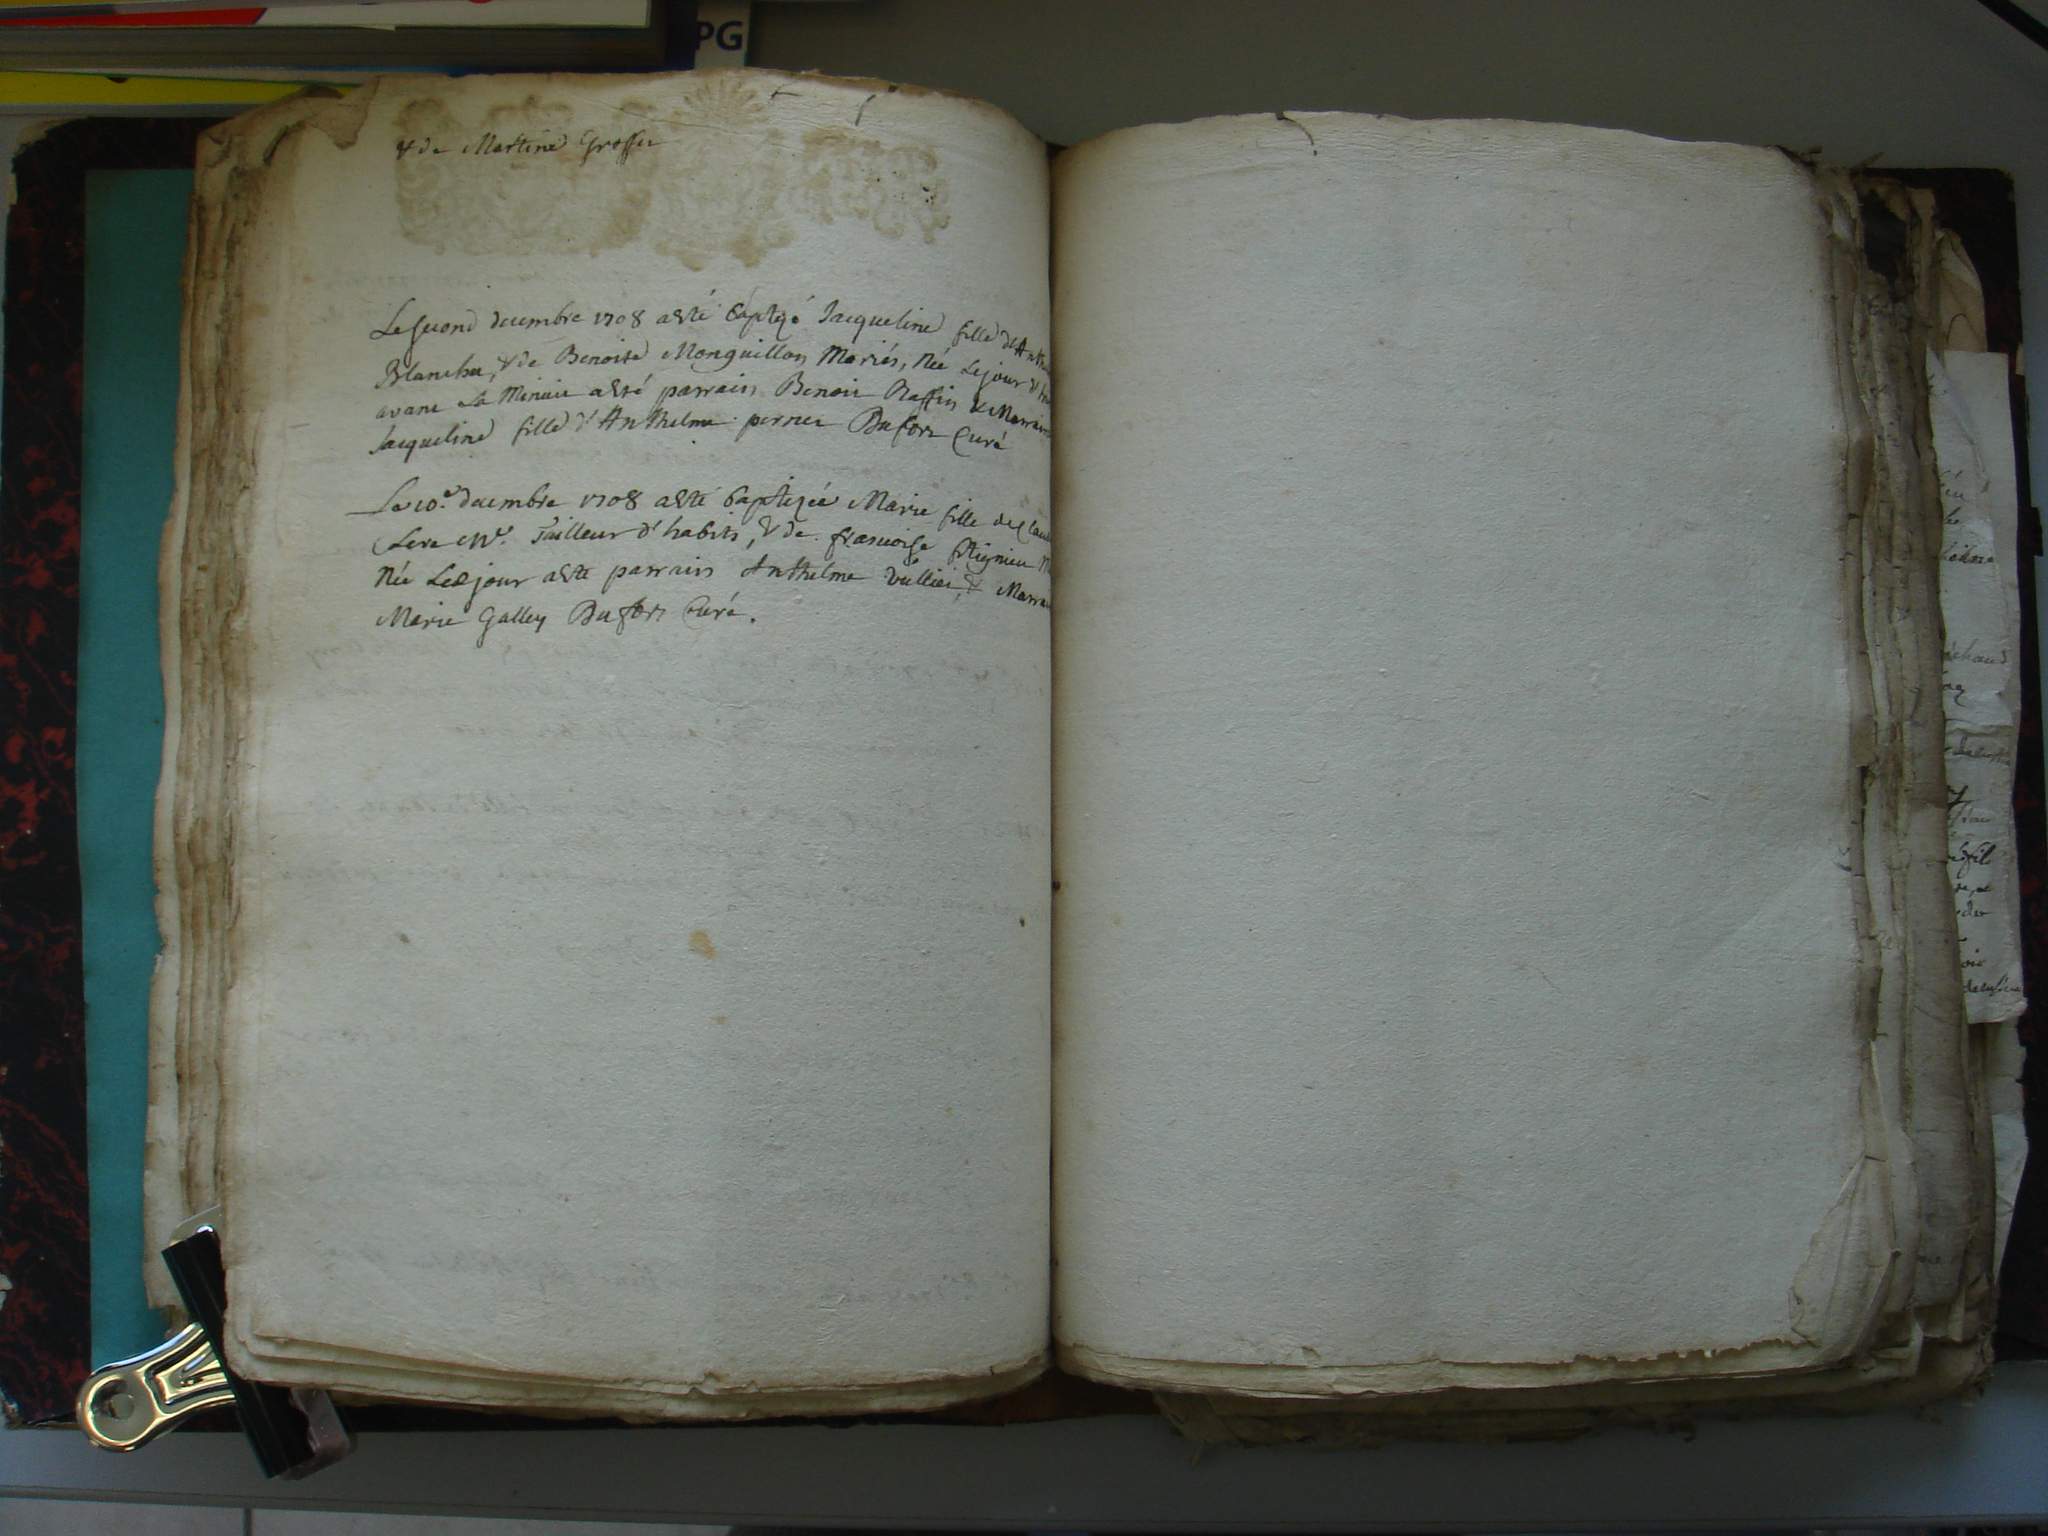 PG
& de Martine Grosse
Le second decembre 1708 a esté baptizé Jacqueline fille d'Anthel
Blanche, & de Benoite Monguillon Mariés, Née le jour
avant la Minuie a esté parrain Benoit Raffin & Marraine
Jacqueline fille d'Anthelme perner Dufort Curé
Le 10.e decembre 1708 a esté baptizée Marie fille de Claude
Clerc Me. Tailleur d'habits, & de francoise
Née Le 8 jour a esté parrain Anthelme Vullier, & Marraine
Marie Galley Dufort Curé.